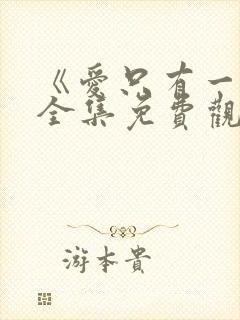 《愛只有一
全集免費觀
游本貴